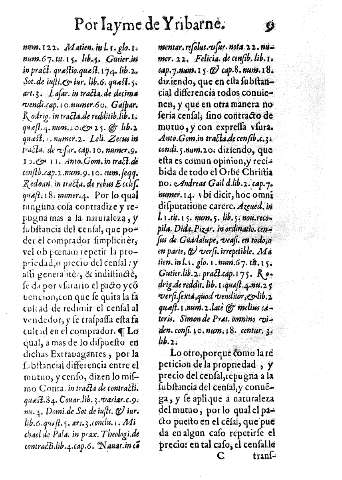 Por Iayme de Yribarne. 9
num. 122. Matien. in l. 1. glo. 1.
num. 67. tit. 15. lib. 5. Gutier. in
pract. quæstio. quæst. 174. lib. 2.
Sot. de iust. & iur. lib. 6. quæst. 5.
art. 3. Lasar. in tracta. de decima
vendi. cap. 10. numer. 60. Gaspar.
Rodrig. in tracta. de redditib. lib. 1.
quæst. 4. num. 20. & 25. & lib. 2
quæst. 1. numer. 2. Leo. Zecus in
tractatu de censib. cap. 10. numer. 9.
10. & 11. Anto. Gom. in tract. de
censib. cap. 2. num. 9. cum seqq.
Redoan. in tracta. de rebus Ecclesi.
quæst. 18. numer. 4. Por lo qual
ninguna cosa contradize y re-
pugna mas a la naturaleza, y
substancia del censal, que po-
der el comprador simpliciter,
vel ob penam repetir la pro-
priedad, o precio del censal: y
assi generalitè, & indistinctè,
se da por vsurario el pacto y cõ
uencion, con que se quita la fa
cultad de redimir el censal al
vendedor, y se traspassa esta fa
cultad en el comprador. ¶ Lo
qual, a mas de lo dispuesto en
dichas Extrauagantes, por la
substancial differencia entre el
mutuo, y censo, dizen lo mis-
mo Conra. in tracta. de contracti.
quæst. 84. Couar. lib. 3. variar. c. 9.
nu. 4. Domi. de Sot. de iust. & iur.
lib. 6. quæst. 5. art. 3. conclu. 1. Mi
chael de Pala. in prax. Theologi. de
contracti. lib. 4. cap. 6. Nauar. in cõ
mentar. resolut. vsur. nota. 22. nu-
mer. 22. Felicia. de censib. lib. 1.
cap. 7. num. 15. & cap. 8. num. 18.
diziendo, que en esta substan-
cial differencia todos conuie-
nen, y que en otra manera no
seria censal; sino contracto de
mutuo, y con expressa vsura.
Anto. Gom. in tracta. de censib. c. 3.
condi. 5. num. 20. diziendo, que
esta es comun opinion, y reci-
bida de todo el Orbe Christia
no. Andreas Gail d. lib. 2. cap. 7.
numer. 14. vbi dicit, hoc omni
disputatione carere. Azeued. in
l. 1. tit. 15. num. 5. lib. 5. nou. recopi-
la. Dida. Pizar. in ordinatio. cen-
sus de Guadalupe, vers. en todo,
in parte, & versi. irrepetible. Ma
tien. in l. 1. glo. 1. num. 67. tit. 15.
Gutier. lib. 2. pract. cap. 175. Ro-
drig. de reddit. lib. 1. quæst. 4. nu. 25
versi. sexta, quod venditor, & lib. 2
quæst. 1. num. 2. latè & melius cæ-
teris. Simon de Præt. omnino vi-
den. consi. 10. num. 18. centur. 3.
lib. 2.
Lo otro, porque como la re
peticion de la propriedad, y
precio del censal, repugna a la
substancia del censal, y conuẽ-
ga, y se aplique a naturaleza
del mutuo, por lo qual el pa-
cto puesto en el cẽsal, que pue
da en algun caso repetirse el
precio: en tal caso, el censal se
C trans-